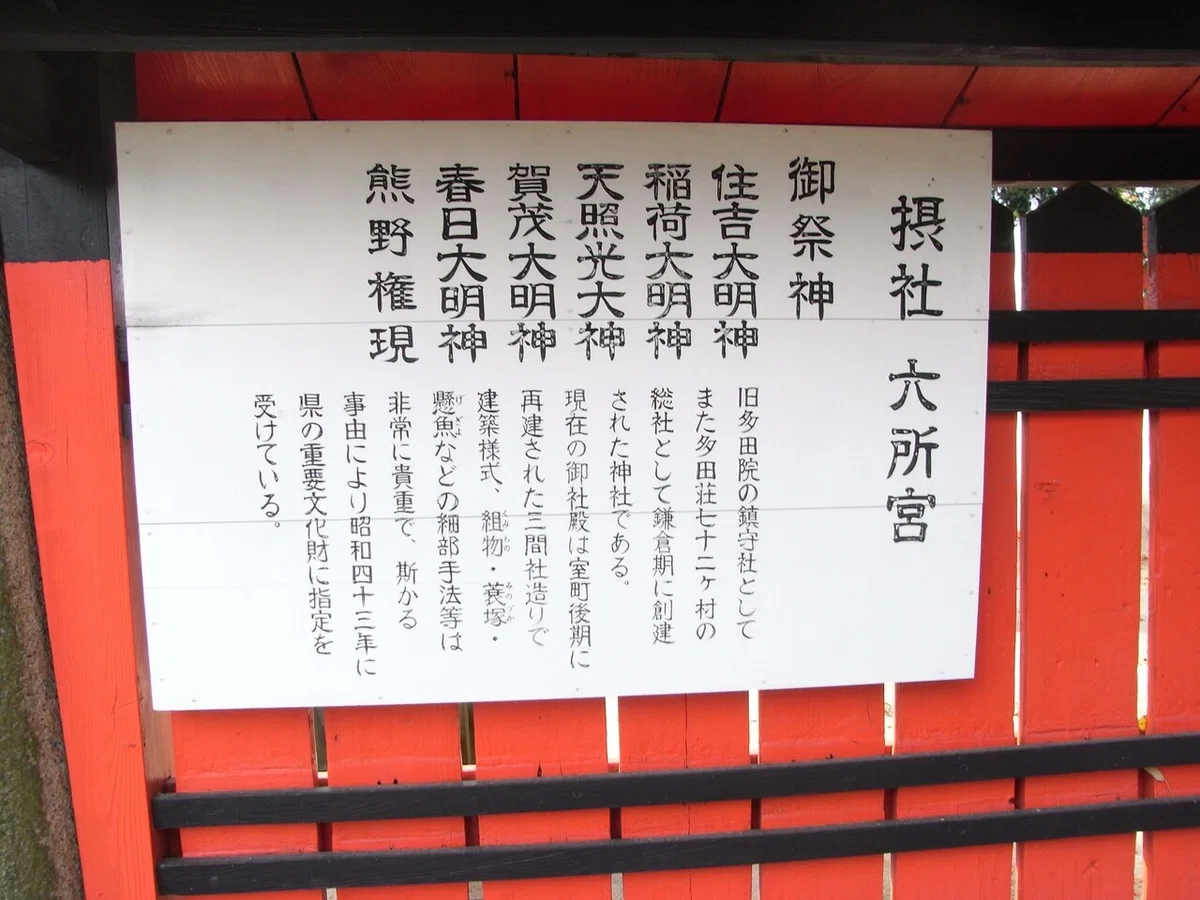 摂社 六所宮
御祭神
住吉大明神
稲荷大明神
天照光大神
賀茂大明神
春日大明神
熊野権現
旧多田院の鎮守社として
また多田荘七十二ヶ村の
総社として鎌倉期に創建
された神社である。
現在の御社殿は室町後期に
再建された三間社造りで
建築様式、組物・蓑塚・
くみもの
みのづか
懸魚などの細部手法等は
げぎょ
非常に貴重で、斯かる
事由により昭和四十三年に
県の重要文化財に指定を
受けている。